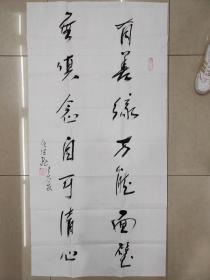 有善缘万能面壁
无嗔念自可清心